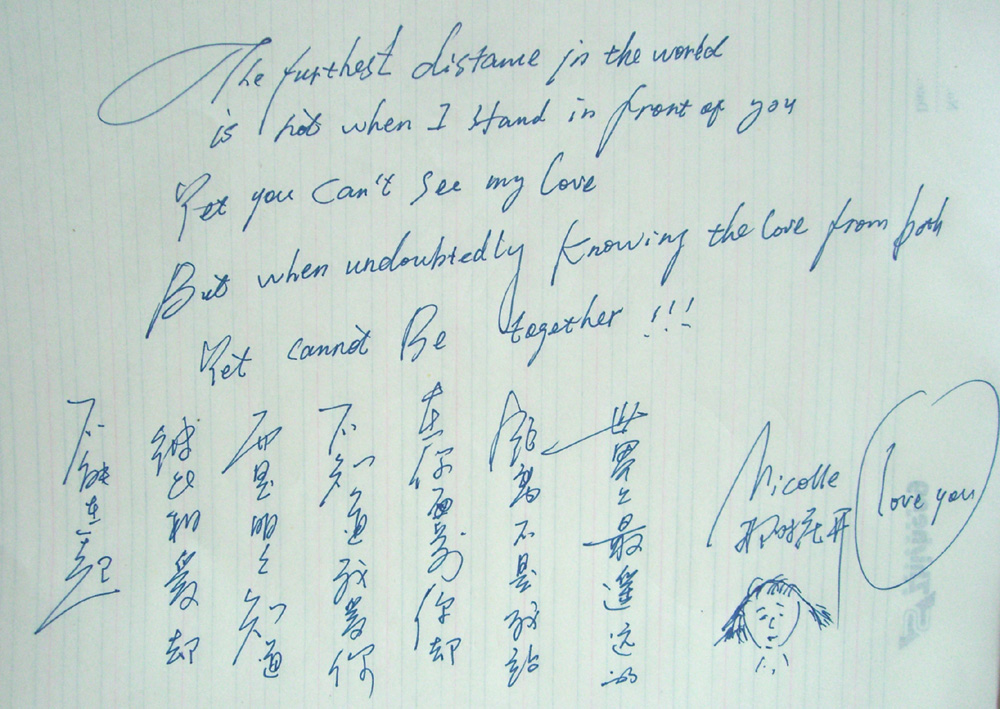 The furthest distance in the world
is not when I stand in front of you
Yet you can't see my love
But when undoubtedly knowing the love from both
Yet cannot Be together !!!
世界上最遥远的
距离不是我站
在你面前你却
不知道我爱你
而是明明知道
彼此相爱却
不能在一起
Nicolle
花开
love you